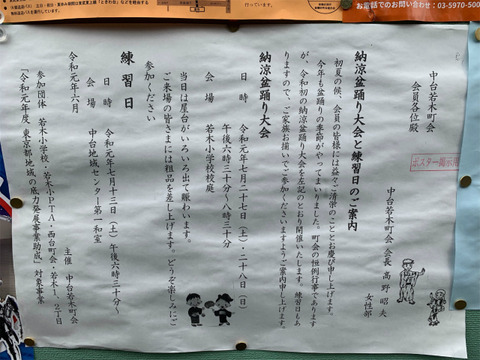 電話でのお問い合わせ:03-5970-500
ポスター掲示用
中台若木町会
会員各位殿
中台若木町会 会長 高野昭夫
女性部
納涼盆踊り大会と練習日のご案内
初夏の候、会員の皆様には益々ご清栄のこととお慶び申し上げます。
今年も盆踊りの季節がやってまいりました。町会の恒例行事であります
が、令和初の納涼盆踊り大会を左記のとおり開催いたします。練習日もあ
りますので、ご家族お揃いでご参加くださいますようご案内申し上げます。
納涼盆踊り大会
日時 令和元年七月二十七日(土)・二十八日(日)
午後六時三十分~八時三十分
会場 若木小学校校庭
当日は屋台がいろいろ出て賑わいます。
ご来場の皆さまには粗品を差し上げます。どうぞ楽しみにご
参加ください
練習日
日時 令和元年七月十三日(土)午後六時三十分~
会場 中台地域センター第一和室
令和元年六月
主催 中台若木町会
参加団体 若木小学校・若木小PTA・西台町会・若木1・2丁目
「令和元年度 東京都地域の底力発展事業助成」対象事業